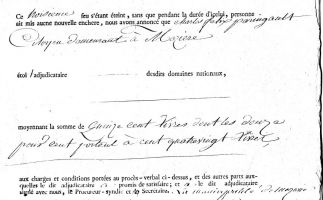 Ce troisieme feu s'étant éteint, sans que pendant la durée d'icelui, personne
ait mis aucune nouvelle enchère, nous avons annoncé que Charles
Citoyen demeurant à Mozere
étoi l'adjudicataire desdits domaines nationaux,
moyennant la somme de Quinze cent livres dont les douze
pour cent portent à cent quatre vingt livres
aux charges et conditions portées au procès-verbal ci-dessus, et des autres parts aux-
quelles le dit adjudicataire a promis de satisfaire; et a le dit adjudicataire
signé avec nous, le Procureur-syndic et le Secrétaire.